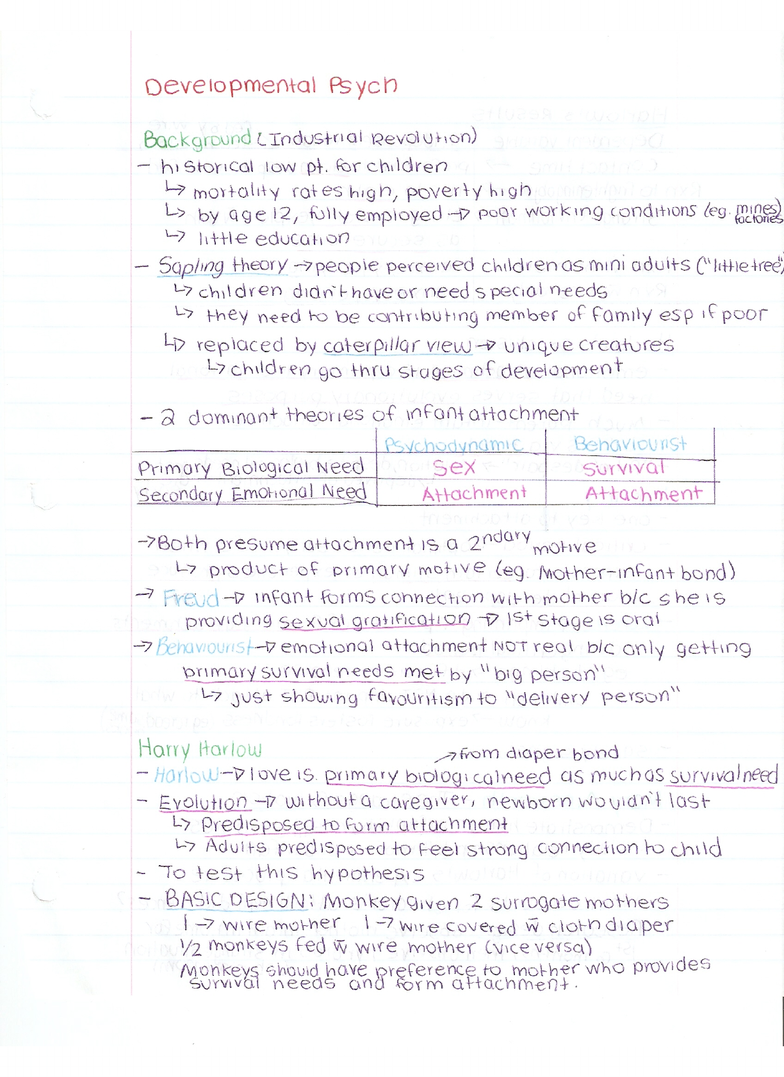 Developmental Psych
Background (Industrial Revolution)
- historical low pt. for children
↳ mortality rates high, poverty high
↳ by age 12, fully employed → poor working conditions (eg. mines, factories)
↳ little education
- Sapling theory → people perceived children as mini adults ("little tree")
↳ children didn't have or need special needs
↳ they need to be contributing member of family esp if poor
↳ replaced by caterpillar view → unique creatures
↳ children go thru stages of development
- 2 dominant theories of infant attachment
Psychodynamic Behaviourist
Primary Biological Need Sex Survival
Secondary Emotional Need Attachment Attachment
→ Both presume attachment is a 2ndary motive
↳ product of primary motive (eg. Mother-infant bond)
→ Freud → infant forms connection with mother b/c she is
providing sexual gratification → 1st stage is oral
→ Behaviourist → emotional attachment NOT real b/c only getting
primary survival needs met by "big person"
↳ just showing favouritism to "delivery person"
Harry Harlow
→ from diaper bond
- Harlow → love is primary biological need as much as survival need
- Evolution → without a caregiver, newborn wouldn't last
↳ Predisposed to form attachment
↳ Adults predisposed to feel strong connection to child
- To test this hypothesis
- BASIC DESIGN: Monkey given 2 surrogate mothers
1 → wire mother 1 → wire covered w̄ cloth diaper
1/2 monkeys fed w̄ wire mother (vice versa)
Monkeys should have preference to mother who provides
survival needs and form attachment.